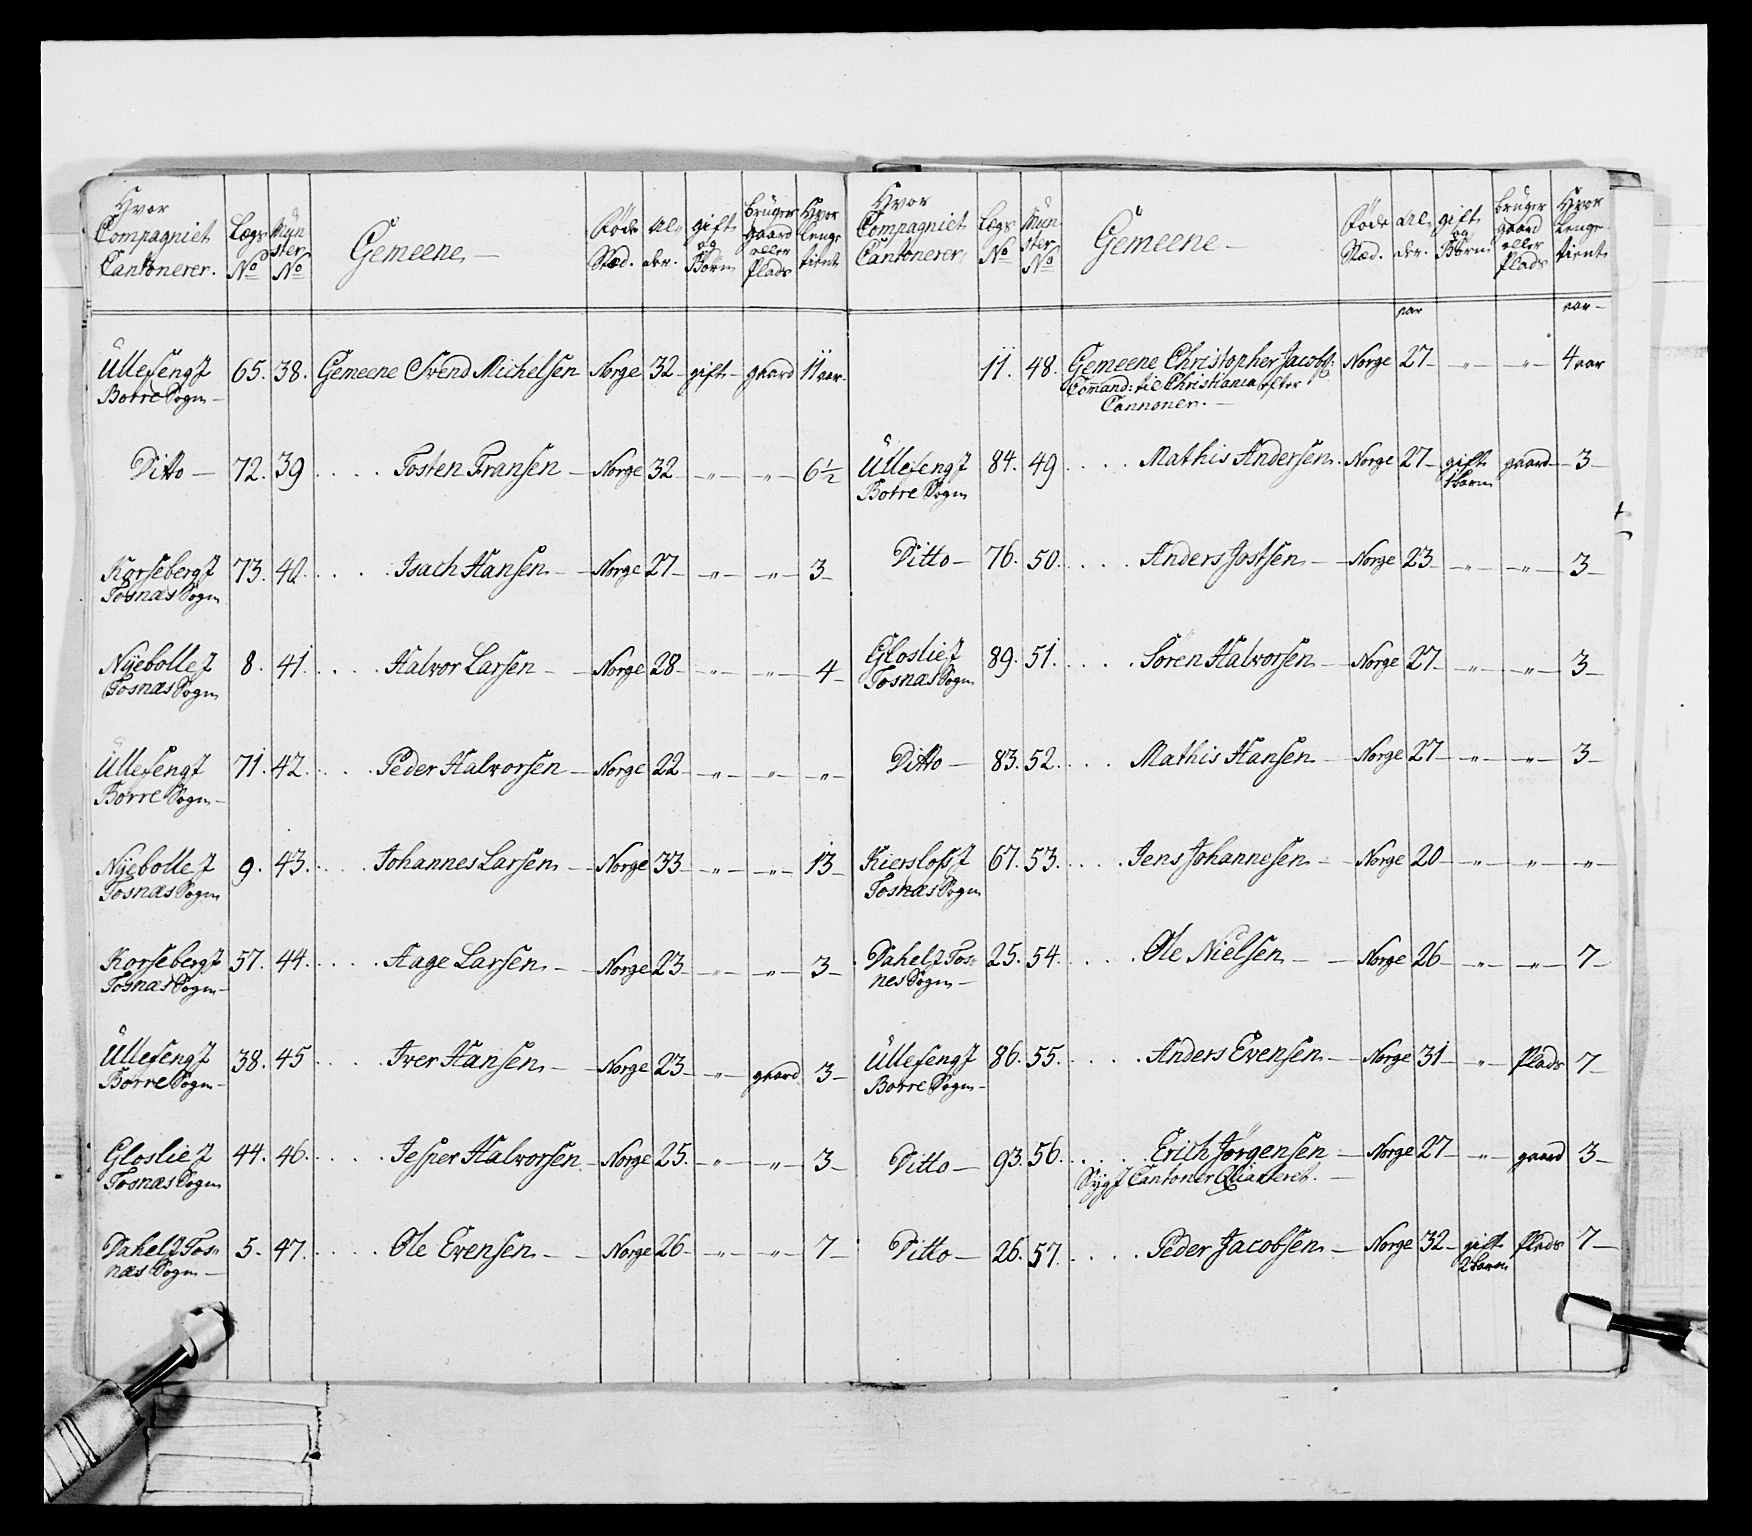 Hvor Compagniet Cantonerer. Lægs No Mynster No Gemeene Føde Stæd. Alder. gift og Børn bruger gaard eller Plads Hvor lenge tient
Üllesengf 65. 38. Gemeene Svend Michelsen Norge 32 gift gaard 11 aar
Botre Sogn
Ditto 72. 39 . . . . Tosten Fransen Norge 32 " " 6½
Korsebergf 73. 40. . . . Isach Hansen Norge 27 " " 3
Tosnæs Sogn
Nÿebollef 8. 41. . . . Halvor Larsen Norge 28 " " 4
Tosnæs Sogn
Üllesengf 71. 42. . . . Peder Halvorsen Norge 22 " " "
Borre Sogn
Nÿebollef 9. 43. . . . Johannes Larsen Norge 33 " " 13
Tosnæs Sogn
Korsebergf 57. 44. . . . Aage Larsen Norge 23 " " 3
Tosnæs Sogn
Üllesengf 38. 45 . . . Iver Hansen Norge 23 " gaard 3
Borre Sogn
Gloslief 44. 46. . . . Jesper Halvorsen Norge 25. " " 3
Tosnæs Sogn
Dahelf Tos= 5. 47. . . . Ole Evensen Norge 26 " " 7
næs Sogn
Hvor Compagniet Cantonerer. Lægs No Mynster No Gemeene Føde Stæd. Alder. gift og Børn bruger gaard eller Plads Hvor lenge tient
aar aar
11. 48. Gemeene Christopher Jacobs: Norge 27 " " 4 aar
Comand: til Christiania efter
Cannoner.
Üllesengf 84. 49 . . . . Mathis Andersen Norge 27 gift gaard 3
Botre Sogn 1 barn
Ditto 76. 50. . . . Anders Jostsen Norge 23 " " 3
Gloslief 89. 51. . . . Søren Halvorsen Norge 27 " " 3
Tosnæs Sogn
Ditto 83. 52. . . . Mathis Hansen Norge 27 " " 3
Kierslofsf 67. 53. . . . Jens Johannesen Norge 20 " " "
Tosnæs Sogn
Dahelf Tos= 25. 54. . . . Ole Nielsen Norge 26 " " 7
nes Sogn
Üllesengf 86. 55. . . . Anders Evensen Norge 31 " Plads 7
Borre Sogn
Ditto 93. 56. . . . Erich Jørgensen Norge 27 " gaard 3
Sÿg f Cantoner Qvarteret.
Ditto 26. 57. . . . Peder Jacobsen Norge 32 gift Plads 7
2 barn